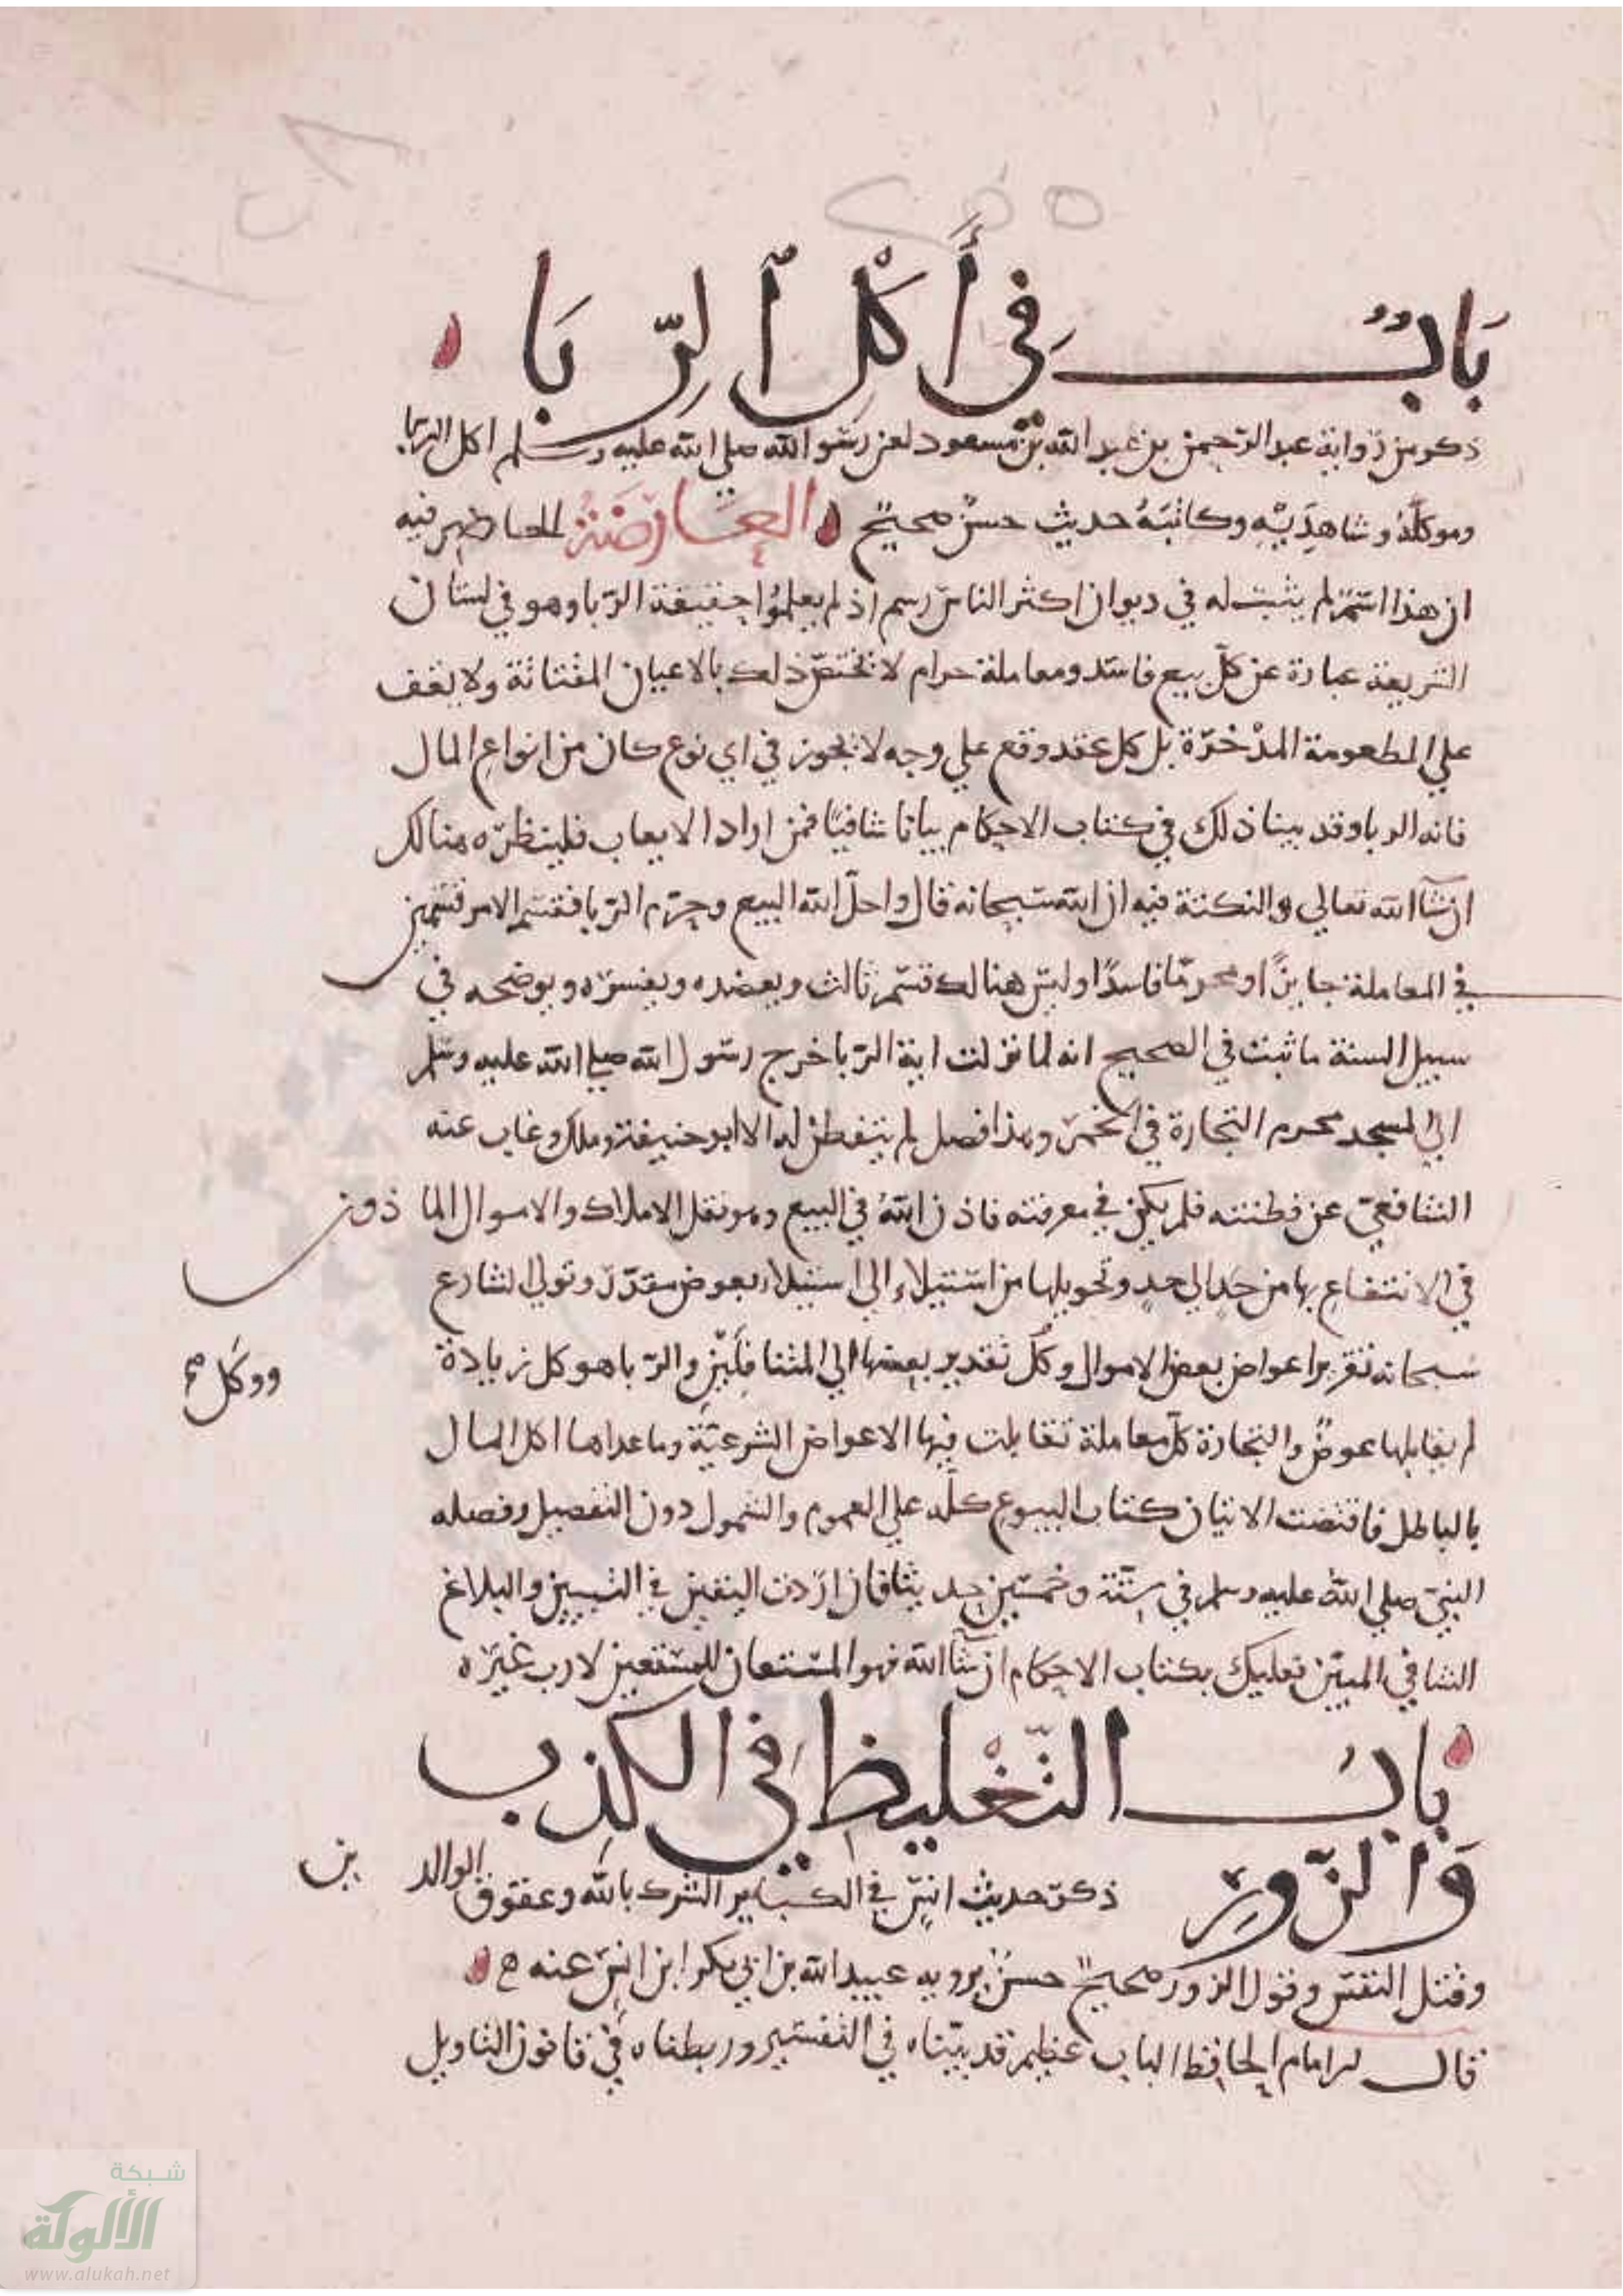 ٢٥٥
بَابٌ فِي أَكْلِ ٱلرِّبَا
ذكر من رواية عبد الرحمن بن عبد الله بن مسعود لعن رسول الله صلى الله عليه وسلم اكل الربا
وموكله وشاهديه وكاتبه حديث حسن صحيح العارضة
ان هذا اسم لم يثبت له في ديوان اكثر الناس رسم اذ لم يعلموا حقيقة الربا وهو في لسان
الشريعة عبارة عن كل بيع فاسد ومعاملة حرام لا تختص ذلك بالاعيان المقتاتة ولا يقف
علي المطعومة المدخرة بل كل عقد وقع علي وجه لا يجوز في اي نوع كان من انواع المال
فانه الربا وقد بينا ذلك في كتاب الاحكام بيانا شافيا فمن اراد الايعاب فلينظره هنالك
ان شآ الله تعالي والنكتة فيه ان الله سبحانه قال واحل الله البيع وحرم الربا فقسم الامر قسمين
في المعاملة جايزا ومحرما فاسدا وليس هنالك قسم ثالث ويعضده ويفسره ويوضحه في
سبيل السنة ما ثبت في الصحيح انه لما نزلت اية الربا خرج رسول الله صلي الله عليه وسلم
الي المسجد محرم التجارة في الخمر وهذا فصل لم يتفطن له الا ابو حنيفة وملك وغاب عنه
الشافعي عن فطنته فلم يكن في معرفته فاذن الله في البيع وهو نقل الاملاك والاموال الماذون
في الانتفاع بها من حد الي حد وتحويلها من استيلاء الي استيلاء بعوض مقدر وتولي الشارع
سبحانه تقرير اعواض بعض الاموال وكل تقدير بعضها الي المتنا والربا هو كل زيادة
ووكل صح
لم يقابلها عوض والتجارة كل معاملة تقابلت فيها الاعواض الشرعية وما عداها اكل المال
بالباطل فاقتضت الايتان كتاب البيوع كله علي العموم والشمول دون التفصيل وفصله
النبي صلي الله عليه وسلم في ستة وخمسين حديثا فان اردت اليقين في التبيين والبلاغ
الشافي المبين فعليك بكتاب الاحكام ان شآ الله فهو المستعان لا رب غيره
باب التَّغْليظِ فِي الكَذِب
وَالزُّورِ ذكر حديث انس في الكباير الشرك بالله وعقوق الوالدين
وقتل النفس وقول الزور صحيح حسن يرويه عبيد الله بن ابي بكر ابن انس عنه
قال الامام الحافظ الباب عظيم قد بيناه في التفسير وربطناه في قانون التاويل
شبكة
الألوكة
www.alukah.net